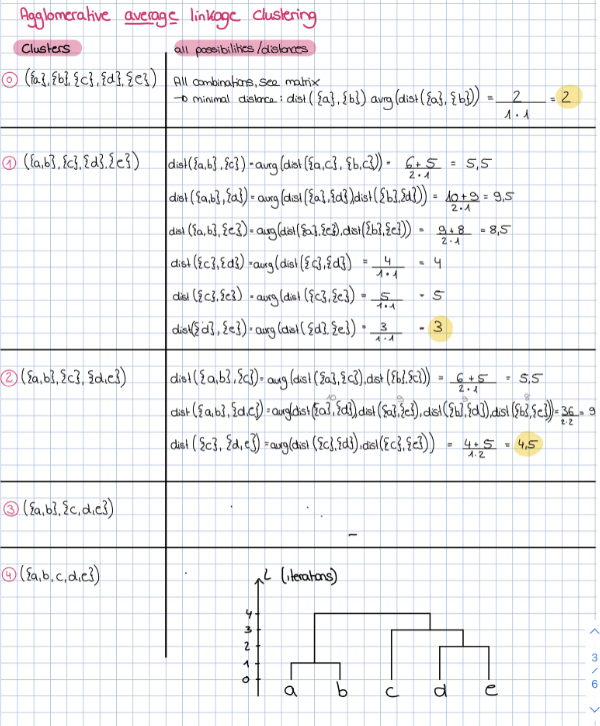 Agglomerative average linkage clustering
Clusters
all possibilities/distances
⓪ ({a},{b},{c},{d},{e})
All combinations, see matrix
→ minimal distance: dist({a},{b}) avrg(dist({a},{b})) = 2/1·1 = 2
① ({a,b},{c},{d},{e})
dist({a,b},{c}) = avrg(dist({a,c},{b,c}) = 6+5/2·1 = 5,5
dist({a,b},{d}) = avrg(dist({a},{d})dist({b},{d})) = 10+9/2·1 = 9,5
dist({a,b},{e}) = avrg(dist({a},{e}),dist({b},{e})) = 9+8/2·1 = 8,5
dist({c},{d}) = avrg(dist({c},{d}) = 4/1·1 = 4
dist({c},{e}) = avrg(dist({c},{e}) = 5/1·1 = 5
dist({d},{e}) = avrg(dist({d},{e}) = 3/1·1 = 3
② ({a,b},{c},{d,e})
dist({a,b},{c}) = avrg(dist({a},{c}),dist({b},{c})) = 6+5/2·1 = 5,5
10 9 9 8
dist({a,b},{d,e}) = avrg(dist({a},{d})dist({a},{e}),dist({b},{d}),dist({b},{e}) = 36/2·2 = 9
dist({c},{d,e}) = avrg(dist({c},{d}),dist({c},{e})) = 4+5/1·2 = 4,5
③ ({a,b},{c,d,e})
④ ({a,b,c,d,e})
L (iterations)
4
3
2
1
0
a b c d e
3
/
6